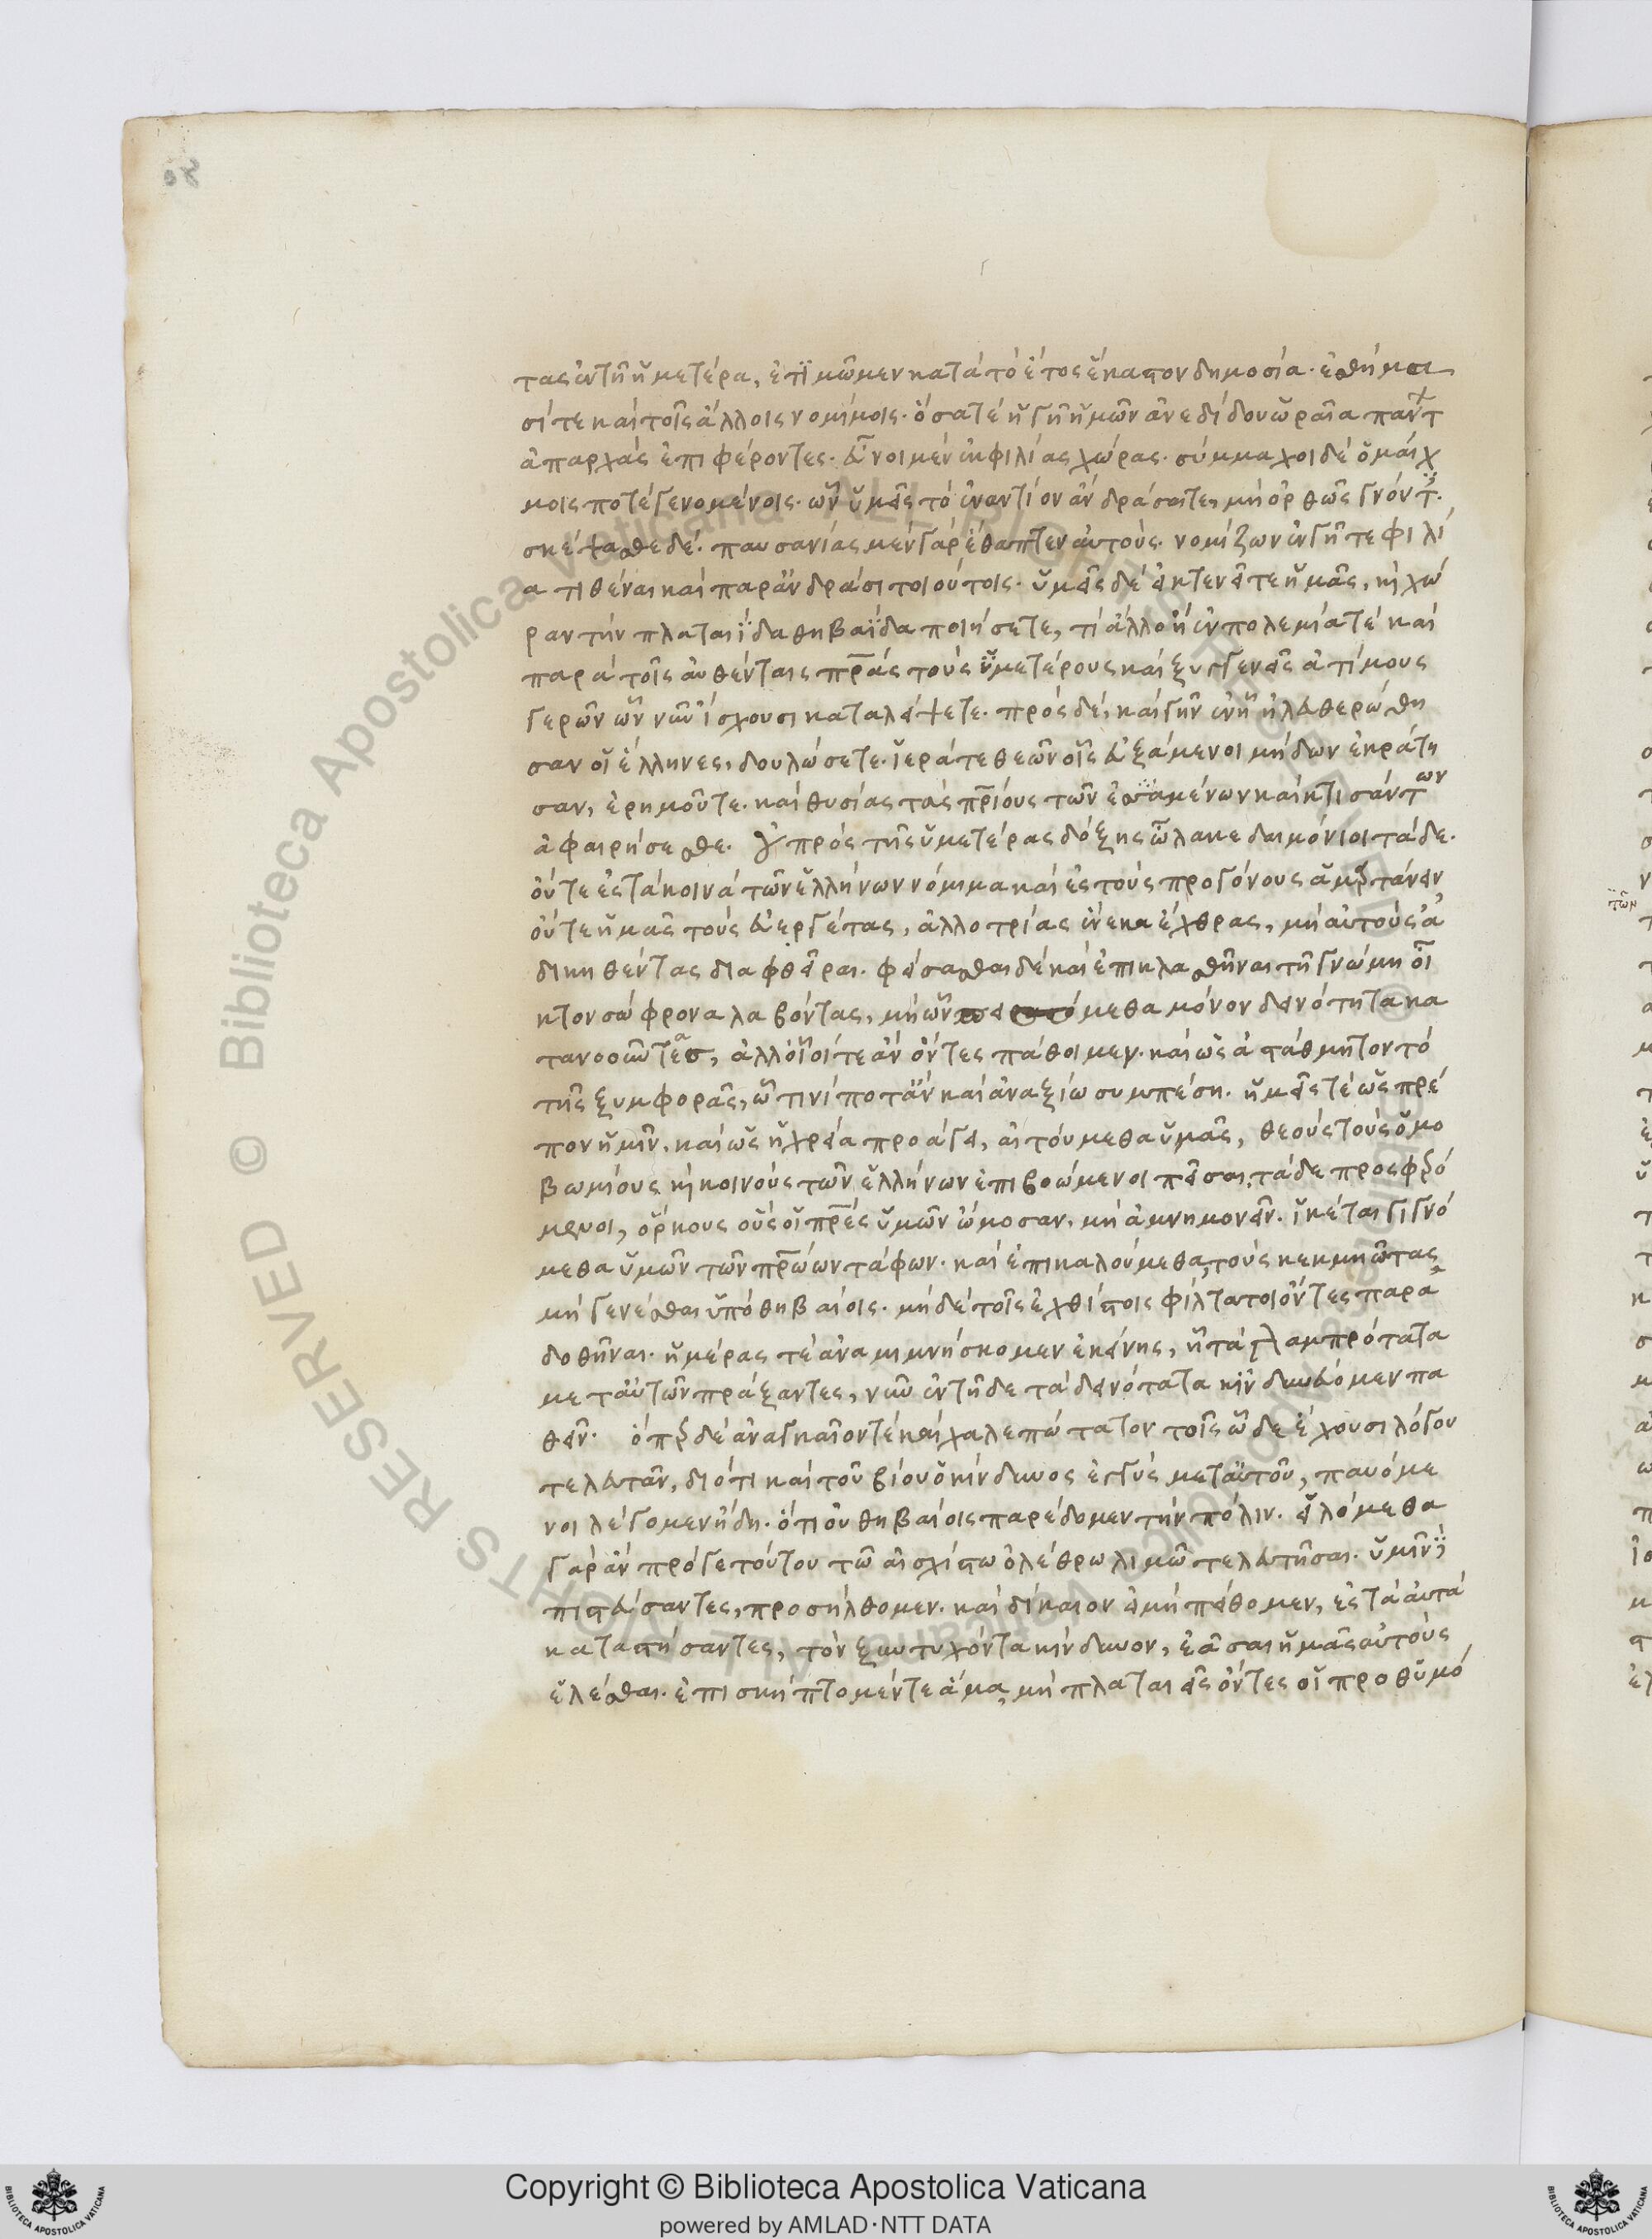 τας ἐν τῆ ἡμετέρα, ἐτιμῶμεν κατὰ τὸ ἔτος ἕκαστον δημοσία· ἐσθήμα
σί τε καὶ τοῖς ἄλλοις νομίμοις· ὅσα τὲ ἡ γῆ ἡμῶν ἀνεδίδου ὡραῖα πάντ
ἀπαρχὰς ἐπιφέροντες· εὖνοι μὲν ἐκ φιλίας χώρας· σύμμαχοι δὲ ὁμαίχ
μοις ποτὲ γενομένοις· ὧν ὑμεῖς τὸ ἐναντίον ἂν δράσαιτε, μὴ ὀρθῶς γνόντ·
σκέψασθε δέ· παυσανίας μὲν γὰρ ἔθαπτεν αὐτούς· νομίζων ἐν γῆ τε φιλί
α τιθέναι καὶ παρ ἀνδράσι τοιούτοις· ὑμεῖς δὲ εἰ κτενεῖτε ἡμᾶς, κ χώ
ραν τὴν πλαταιίδα θηβαΐδα ποιήσετε, τί ἄλλο ἢ ἐν πολεμία τὲ καὶ
παρὰ τοῖς αὐθένταις πρας τοὺς ὑμετέρους καὶ ξυγγενεῖς ἀτίμους
γερῶν ὧν νῦν ἴσχουσι καταλείψετε· πρὸς δὲ, καὶ γῆν ἐν ᾗ ἠλευθερώθη
σαν οἱ ἕλληνες, δουλώσετε· ἱερά τε θεῶν οἷς εὐξάμενοι μήδων ἐκράτη
σαν, ἐρημοῦτε· καὶ θυσίας τὰς πρίους τῶν ἐσσαμένων καὶ κτισάντων
ἀφαιρήσεσθε· οὐ πρὸς τῆς ὑμετέρας δόξης ὦ λακεδαιμόνιοι τάδε·
οὔτε ἐς τὰ κοινὰ τῶν ἑλλήνων νόμιμα καὶ ἐς τοὺς προγόνους ἁμρτάνειν
οὔτε ἡμᾶς τοὺς εὐεργέτας, ἀλλοτρίας ἕνεκα ἔχθρας, μὴ αὐτοὺς ἀ
δικηθέντας διαφθεῖραι· φείσασθαι δὲ καὶ ἐπικλασθῆναι τῆ γνώμη οἴ
κτον σώφρονα λαβόντας, μὴ ὧν πεισόμεθα μόνον δεινότητα κα
τανοοῦντεας, ἀλλ οἷοί τε ἂν ὄντες πάθοιμεν· καὶ ὡς ἀστάθμητον τὸ
τῆς ξυμφορᾶς, ὧ τινί ποτ ἂν καὶ ἀναξίω συμπέση· ἡμεῖς τὲ ὡς πρέ
πον ἡμῖν, καὶ ὡς ἡ χρεία προάγει, αἰτούμεθα ὑμᾶς, θεοὺς τοὺς ὁμο
βωμίους κ κοινοὺς τῶν ἑλλήνων ἐπιβοώμενοι πεῖσαι τάδε προσφρό
μενοι, ὅρκους οὓς οἱ πρες ὑμῶν ὤμοσαν, μὴ ἀμνημονεῖν· ἱκέται γιγνό
μεθα ὑμῶν τῶν πρώων τάφων· καὶ ἐπικαλούμεθα τοὺς κεκμηῶτας
μὴ γενέσθαι ὑπὸ θηβαίοις· μὴ δὲ τοῖς ἐχθίστοις φίλτατοι ὄντες παρα
δοθῆναι· ἡμέρας τὲ ἀναμιμνήσκομεν ἐκείνης, ᾗ τὰ λαμπρότατα
μετ αὐτῶν πράξαντες, νῦν ἐν τῆδε τὰ δεινότατα κινδυνεύομεν πα
θεῖν· ὅπρ δὲ ἀναγκαῖον τὲ καὶ χαλεπώτατον τοῖς ὧδε ἔχουσι λόγου
τελευτᾶν, διότι καὶ τοῦ βίου ὁ κίνδυνος ἐγγὺς μετ αὐτοῦ, παυόμε
νοι λέγομεν ἤδη· ὅτι οὐ θηβαίοις παρέδομεν τὴν πόλιν· εἱλόμεθα
γὰρ ἂν πρό γε τούτου τῶ αἰσχίστω ὀλέθρω λιμῶ τελευτῆσαι· ὑμῖν
πιστεύσαντες, προσήλθομεν· καὶ δίκαιον εἰ μὴ πείθομεν, ἐς τὰ αὐτὰ
καταστήσαντες, τὸν ξυντυχόντα κίνδυνον, ἐᾶσαι ἡμᾶς αὐτοὺς
ἑλέσθαι· ἐπισκήπτομέν τε ἅμα, μὴ πλαταιεῖς ὄντες οἱ προθυμό
Copyright © Biblioteca Apostolica Vaticana
powered by AMLAD·NTT DATA